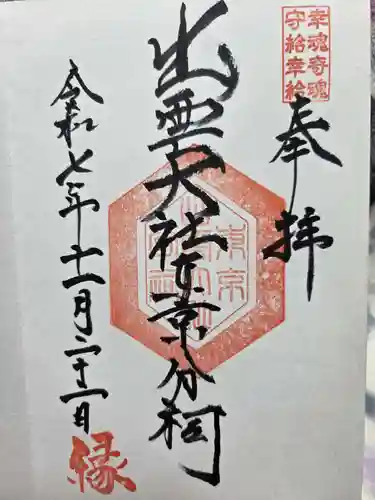 幸魂奇魂
守給幸給
奉拝
出雲大社東京分祠
令和七年十一月二十一日
縁